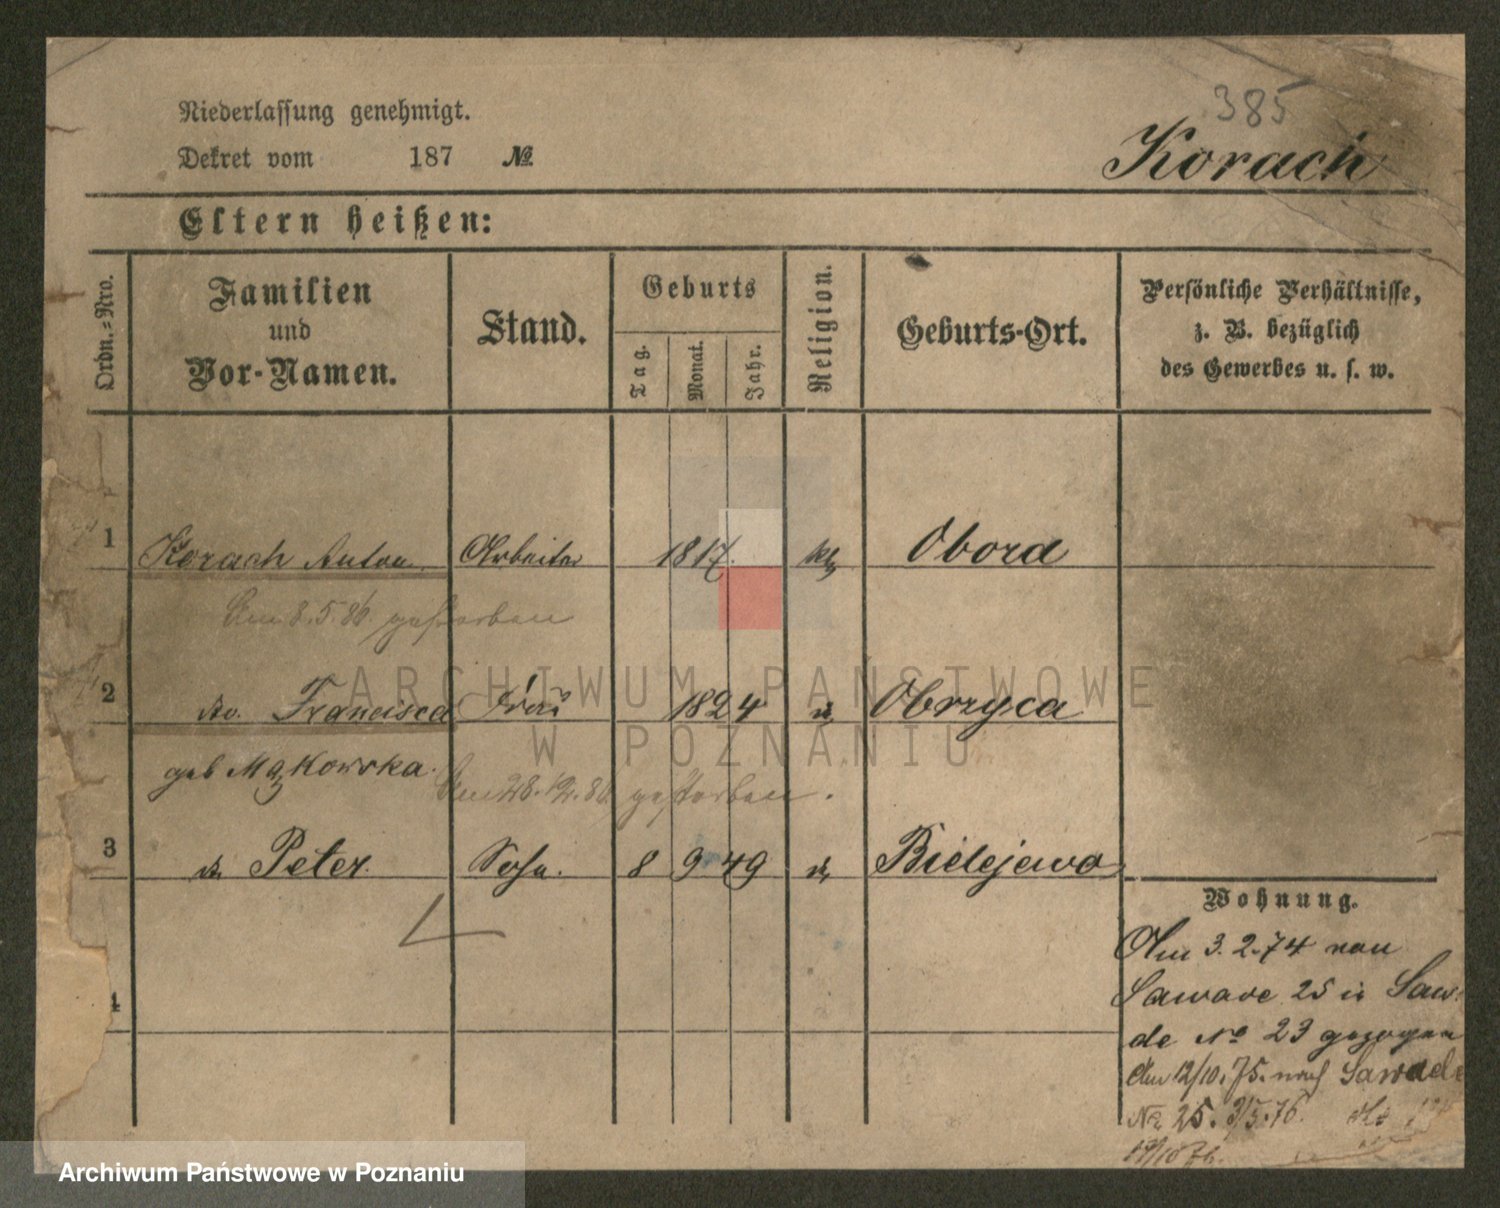 385
Niederlassung genehmigt.
Korach
Dekret vom 187 №
Eltern heißen:
Ordn.=Nro.
Familien
und
Vor-Namen.
Stand.
Geburts
Tag.
Monat.
Jahr.
Religion.
Geburts-Ort.
Persönliche Verhältnisse,
z. B. bezüglich
des Gewerbes u. s. w.
1 Korach Anton. Arbeiter 1817. kth Obora
Am 8.5.86 gestorben
2 do. Francisca Frau 1824 Obrzyca
geb Mązkowska.
Am 28.12.86 gestorben.
3 Peter. Sohn. 8 9 49 Bielejewo
4
Wohnung.
Am 3.2.74 von
Sawade 25 in Saw
de No 23 gezogen
Am 12/10.75. nach Sawade
No 25.
ARCHIWUM PAŃSTWOWE
W POZNANIU
Archiwum Państwowe w Poznaniu